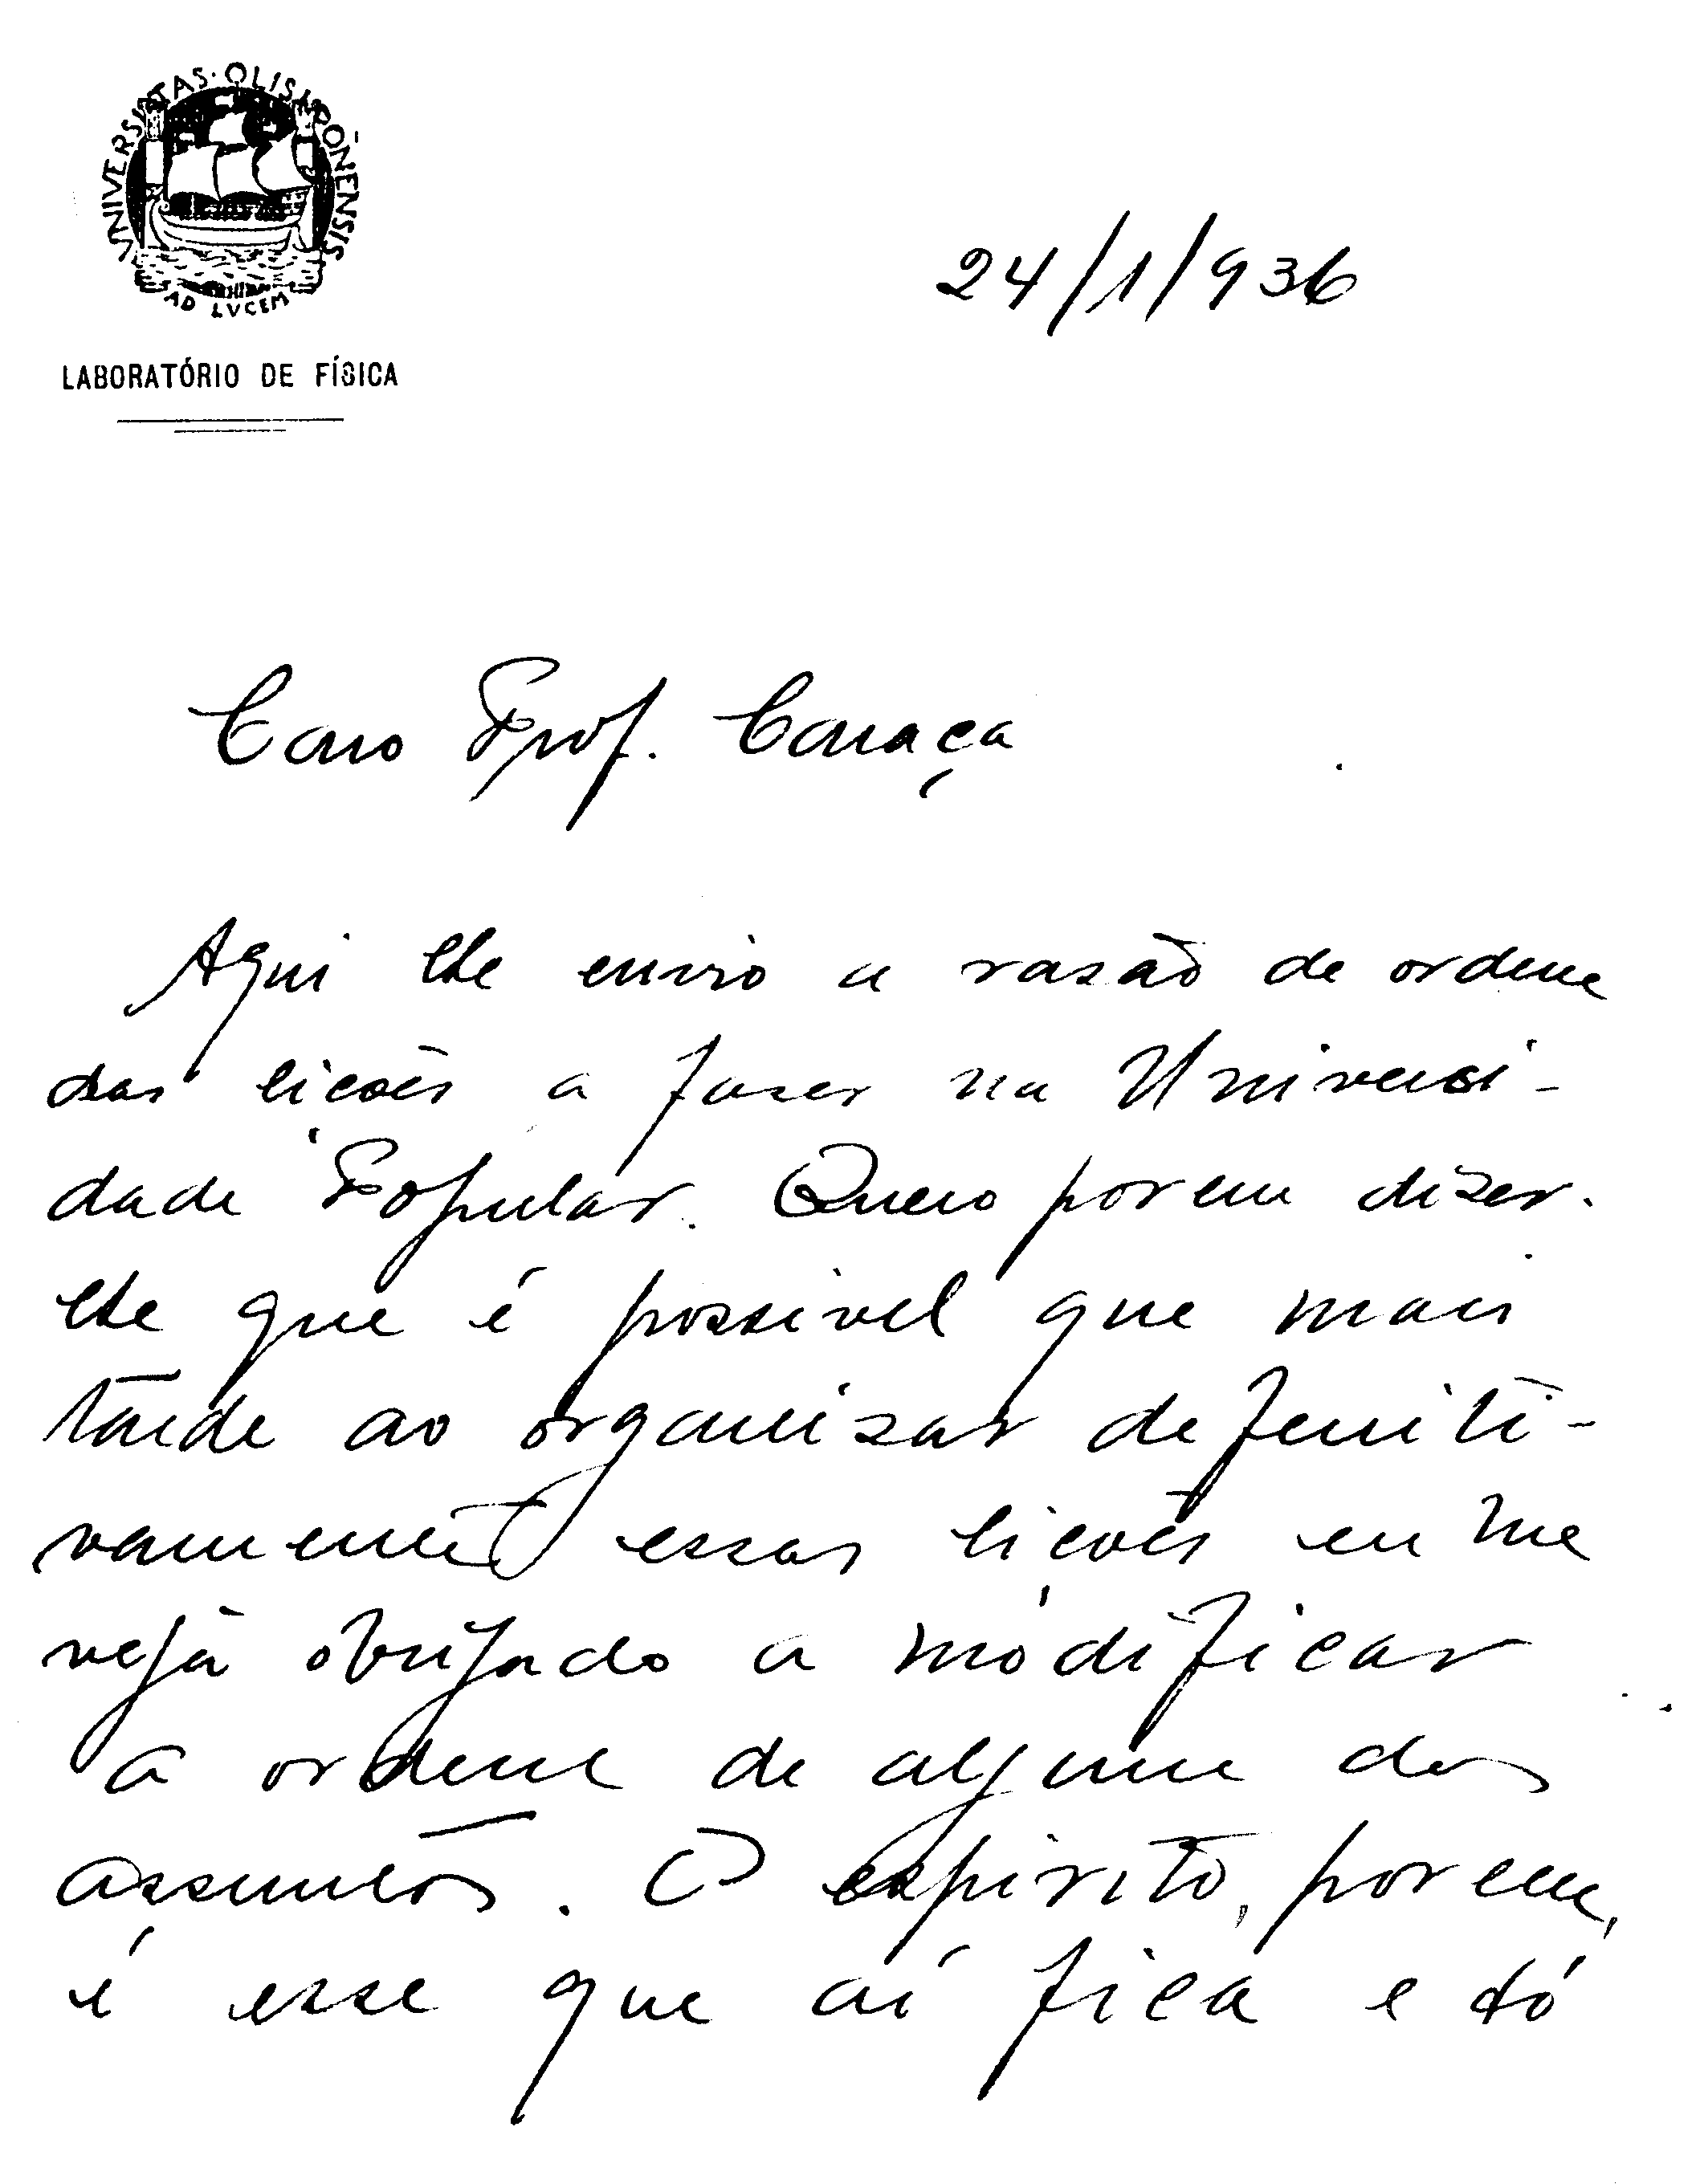 VNIVERSITAS·OLISIPONENSIS
AD LVCEM
LABORATÓRIO DE FÍSICA
24/1/936
Caro Prof. Caraça
Aqui lhe envio a rasão de ordem
das lições a faser na Universi-
dade Popular. Quero porem dizer-
lhe que é possivel que mais
tarde ao organisar defeniti-
vamente essas lições eu me
veja obrigado a modificar
a ordem de algum dos
assuntos. O espirito, porem,
é esse que aí fica e só